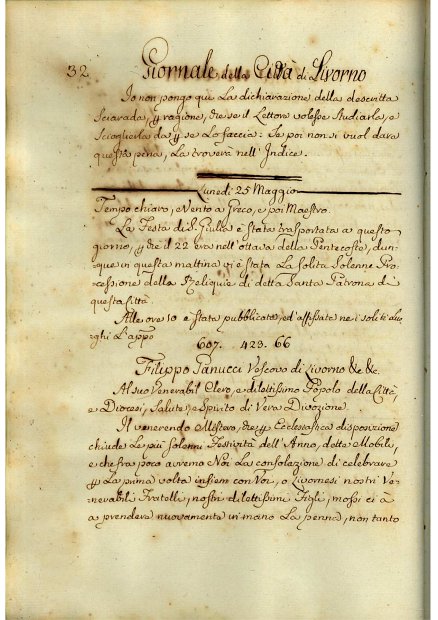 32 Giornale della Città di Livorno
Io non pongo quì La dichiarazione della descritta
Sciarada, p ragione, che se il Lettore volesse studiarla, e
Scioglierla da p se Lo faccia: Se poi non si vuol dare
questa pena, La troverà nell'Indice.
Lunedì 25 Maggio
Tempo chiaro, e Vento a Greco, e poi Maestro.
La Festa di S. Giulia è stata trasportata a questo
giorno, p che il 22 era nell'ottava della Pentecoste, dun-
que in questa mattina vi è stata La solita Solenne Pro-
cessione della Reliquie di detta Santa Patrona di
questa Città.
Alle ore 10 è stata pubblicata, ed'affissata ne i soliti Luo-
ghi L'appo
607. 423. 66
Filippo Ganucci Vescovo di Livorno &c &c.
Al suo Venerabil Clero, e dilettissimo Popolo della Città,
e Diocesi, Salute, e Spirito di Vera Divozione.
Il venerendo Mistero, che p Ecclesiastica disposizione
chiude Le più Solenni Festività dell'Anno, dette Mobile,
e che fra poco avremo Noi La consolazione di celebrare
p La prima volta insiem con Voi, o Livornesi nostri Ve-
nerabili Fratelli, nostri dilettissimi Figli, mossi ci à
a prendere nuovamente in mano La penna, non tanto